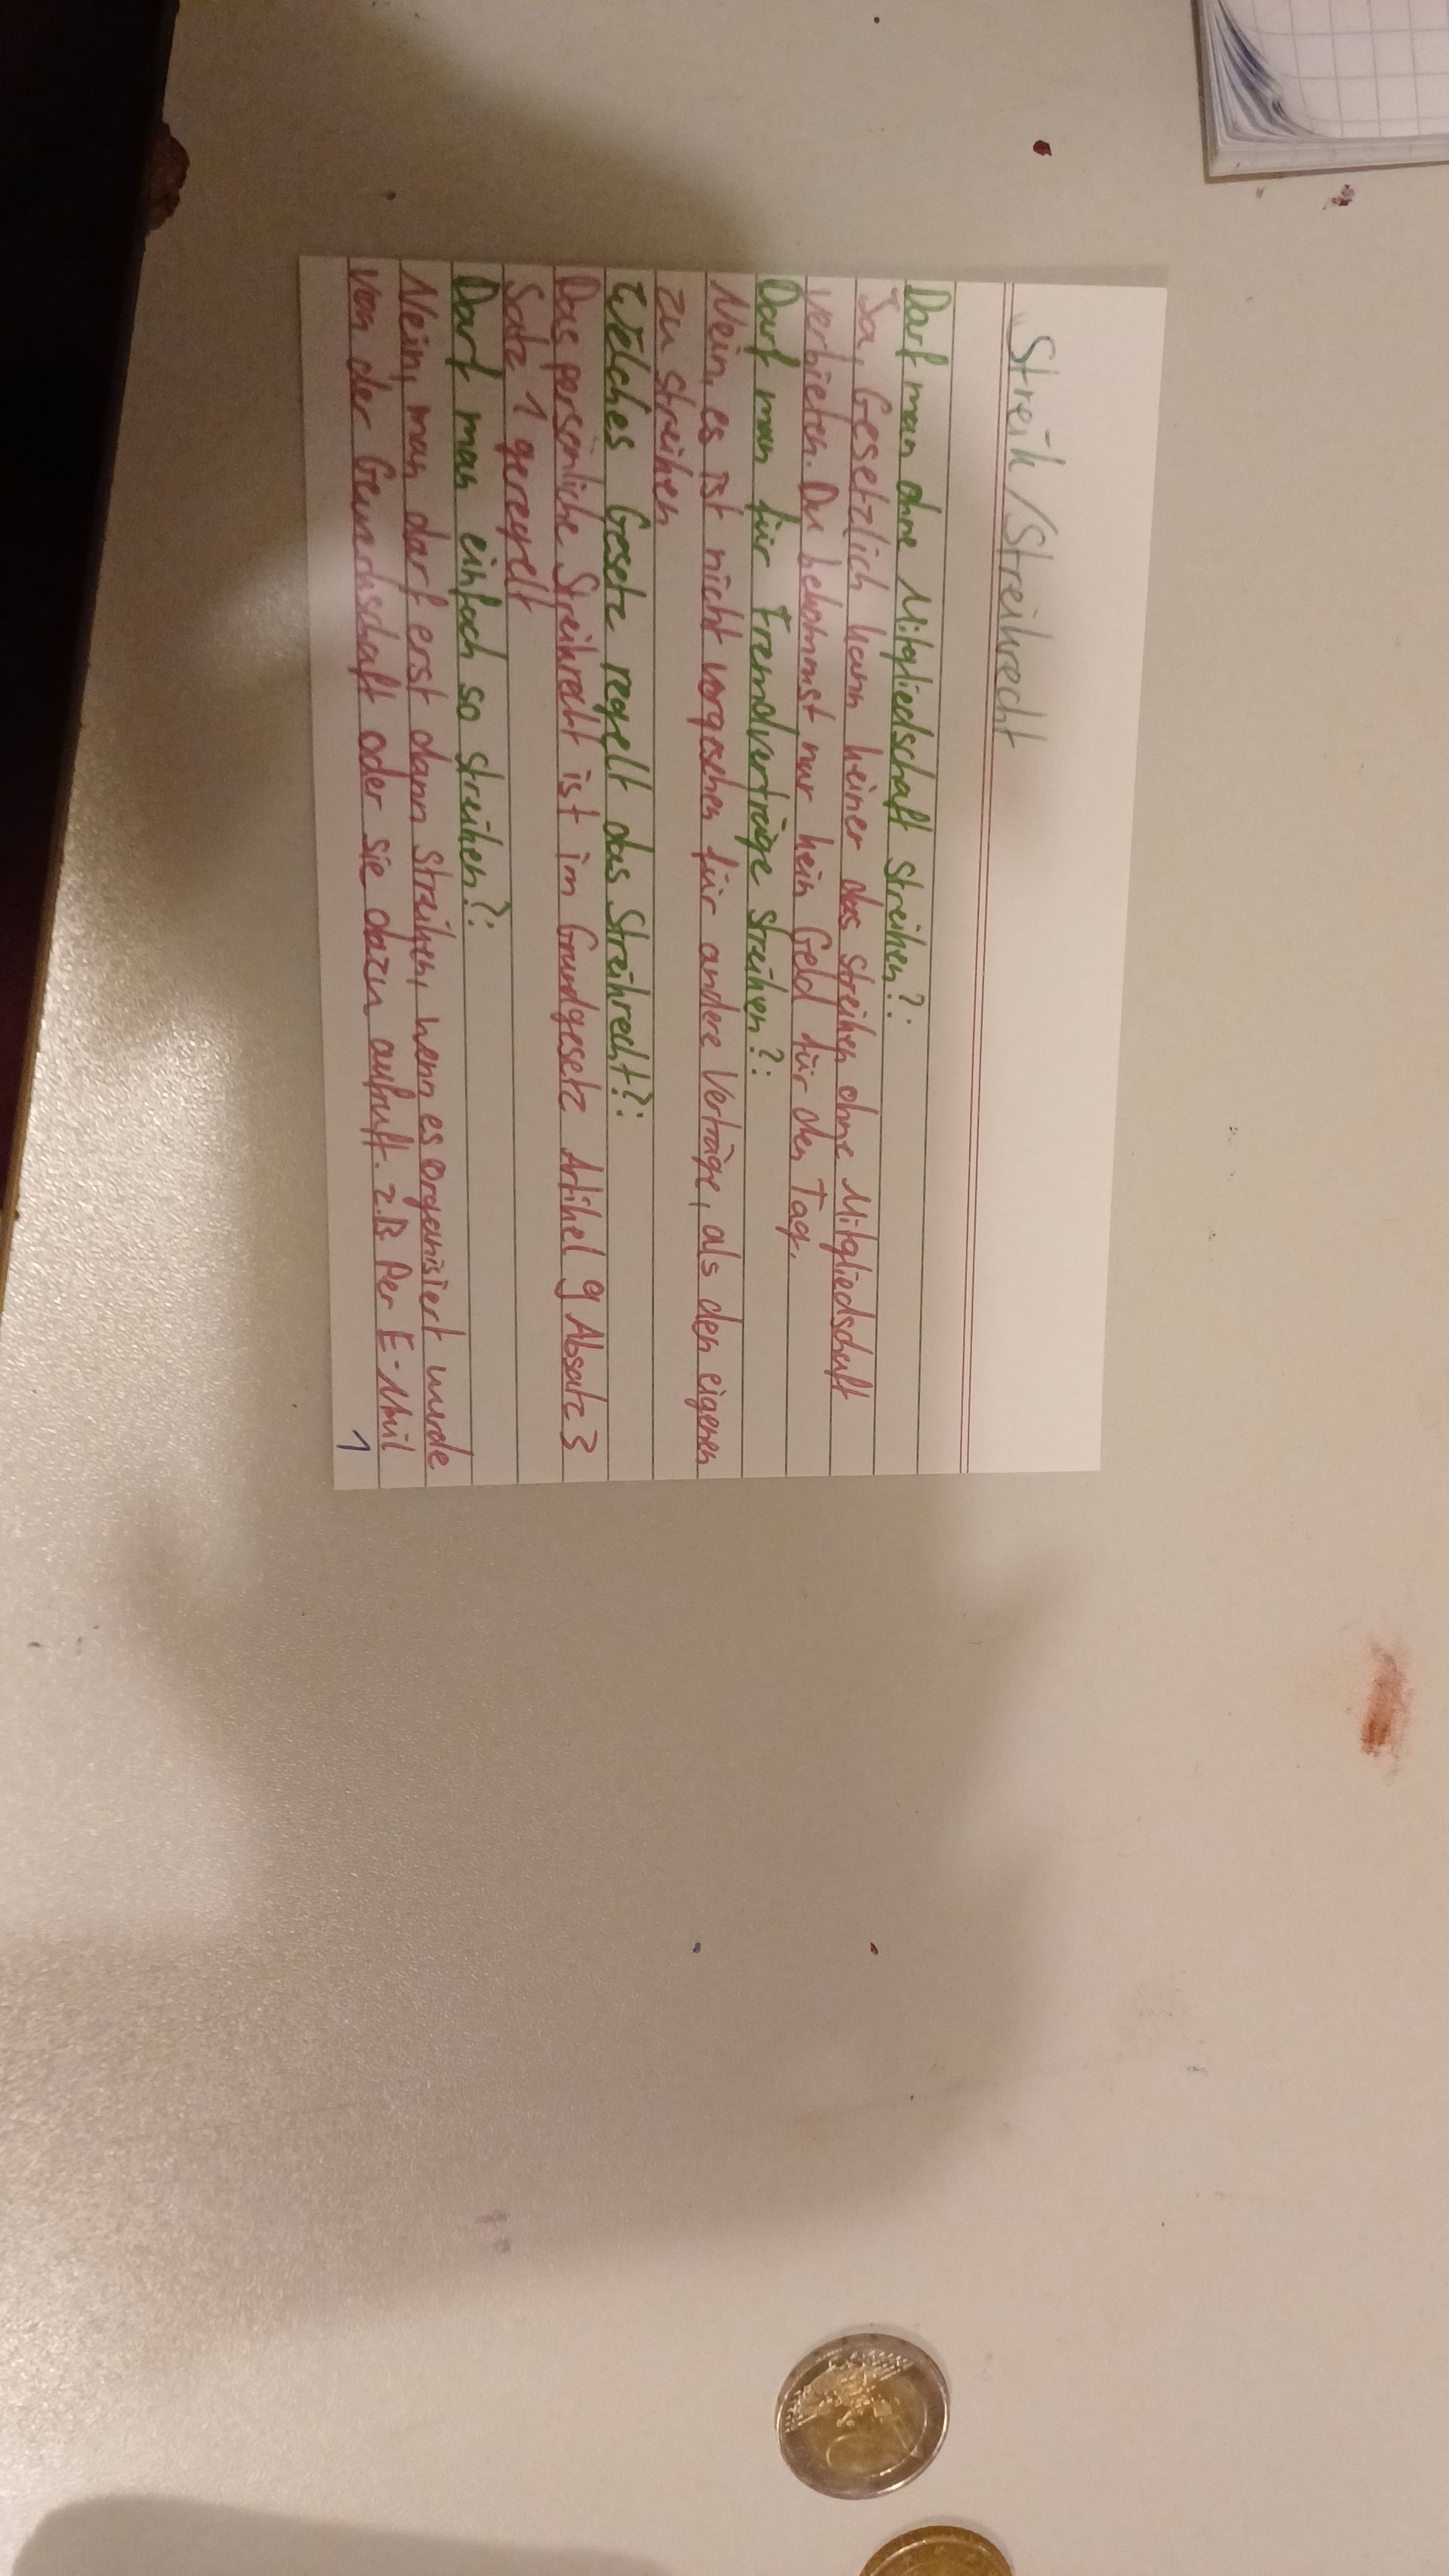 Streik/Streikrecht
Darf man ohne Mitgliedschaft streiken?:
Ja, Gesetzlich kann keiner das streiken ohne Mitgliedschaft
verbieten. Du bekommst nur kein Geld für den Tag.
Darf man für Fremdverträge streiken?:
Nein, es ist nicht vorgesehen für andere Verträge, als den eigenen
zu streiken
Welches Gesetz regelt das Streikrecht?:
Das persönliche Streikrecht ist im Grundgesetz Artikel 9 Absatz 3
Satz 1 geregelt
Darf man einfach so streiken?:
Nein, man darf erst dann streiken, wenn es organisiert wurde
von der Gewerkschaft oder sie dazu aufruft. z.B. Per E-Mail
1